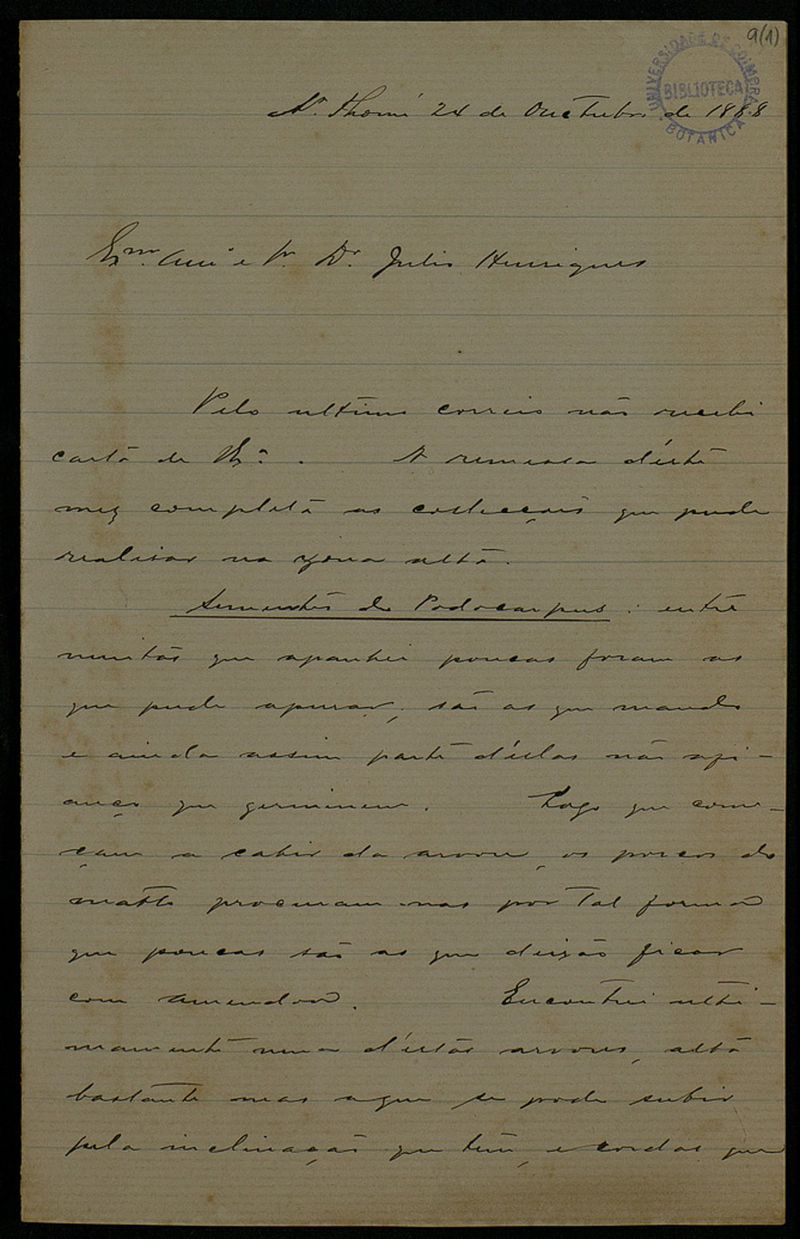 9(1)
UNIVERSIDADE DE COIMBRA
BIBLIOTECA
BOTANICA
S. Thomé 24 de Outubro de 1888
Exmo. Amo. e Sr. Dr. Julio Henriques
Pelo ultimo correio não recebi
carta de V. Exa. A remessa d'este
mez completa as collecções que pude
realisar na zona alta.
Sementes de Podocarpus: entre
muitas que apanhei poucas foram as
que pude apurar; são as que mando
e ainda assim parte d'ellas não afi-
anço que germinem. Logo que come-
çam a cahir da arvore, os porcos do
matto procuram-nas por tal forma
que poucas são as que deixão ficar
com amendoa. Encontrei ulti-
mamente uma d'estas arvores, alta
bastante mas a que se pode subir
pela inclinação que tem, e cordas que